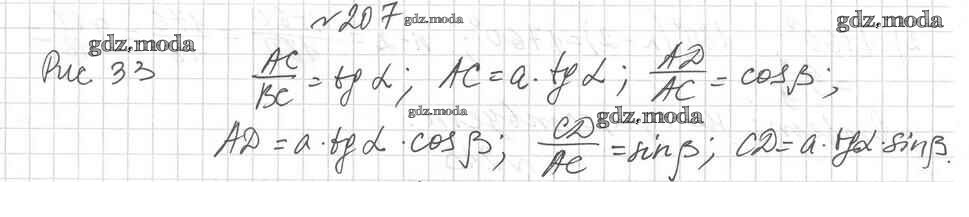 №207 gdz.moda gdz.moda
gdz.moda
Рис 33 AC/BC = tg α; AC = a · tg α; AD/AC = cos β;
gdz.moda gdz.moda
AD = a · tg α · cos β; CD/AC = sin β; CD = a · tg α · sin β.